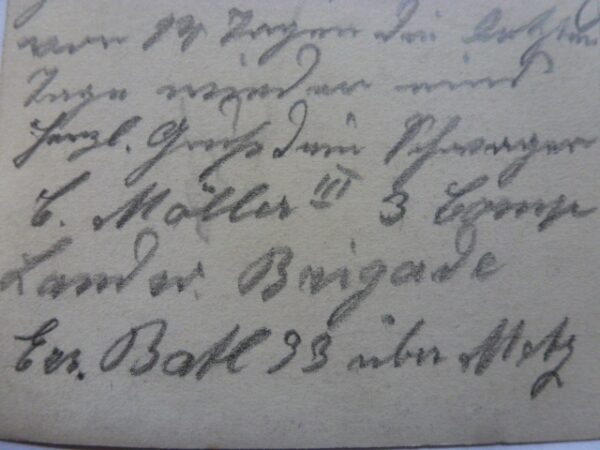 von 14 Tagen die letzten
Tage wieder eins
Herzl. Gruß dein Schwager
C. Möller III 3 Comp
Landw. Brigade
Ers. Batl 33 über Metz